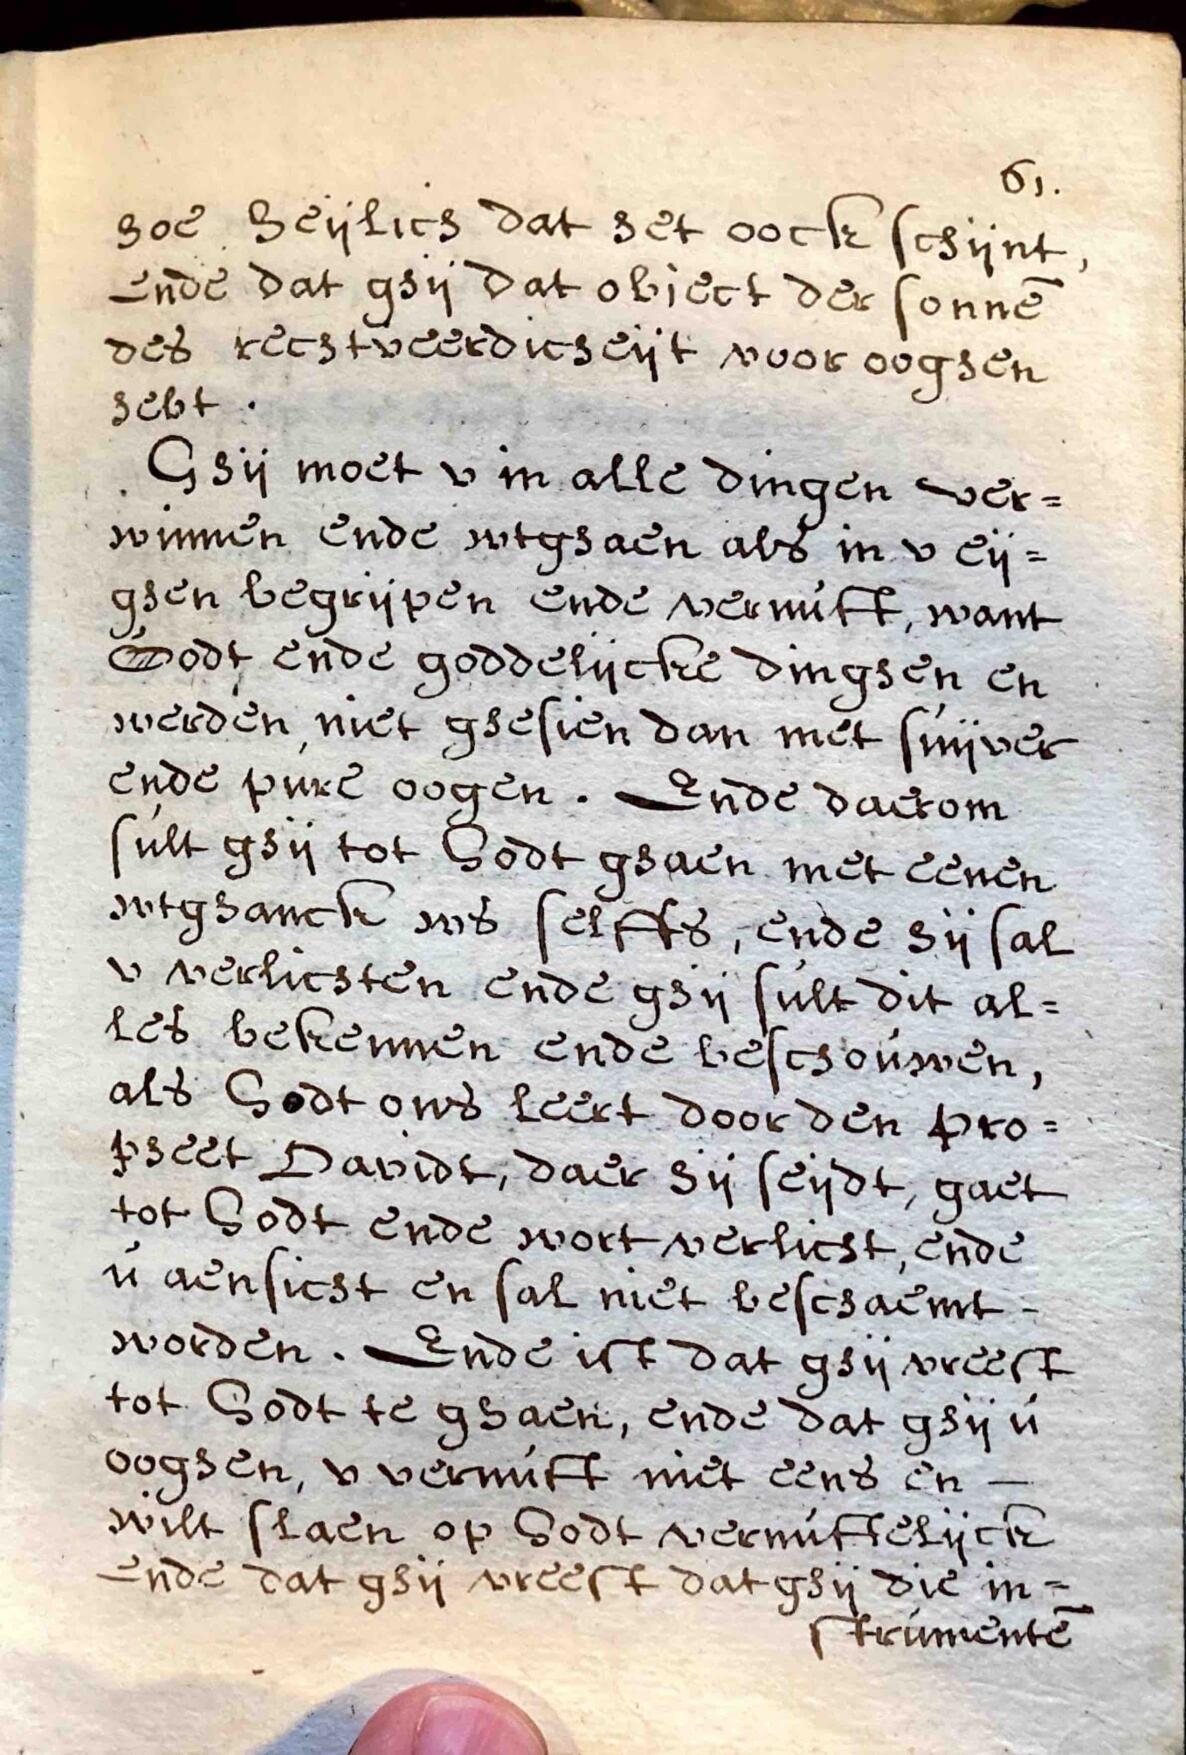 61.
hoe heijlich dat het oock schijnt,
Ende dat ghij dat obiect der sonnē
des rechtveerdicheijt voor ooghen
hebt.
Ghij moet v in alle dingen ver=
winnen ende wtghaen als in v eij=
ghen begrijpen ende vernúft, want
Godt ende goddelijcke dinghen en
werden, niet ghesien dan met súijver
ende pure oogen. Ende daerom
súlt ghij tot Godt ghaen met eenen
wtghanck ws selffs, ende hij sal
v verlichten ende ghij súlt dit al=
les bekennen ende beschoúwen,
als Godt ons leert door den pro=
pheet Davidt, daer hij seijdt, gaet
tot Godt ende wort verlicht, ende
ú aensicht en sal niet beschaemt -
worden. Ende ist dat ghij vreest
tot Godt te ghaen, ende dat ghij ú
ooghen, v vernúft niet eens en —
wilt slaen op Godt vernúftelijck
Ende dat ghij vreest dat ghij die in=
strúmentē